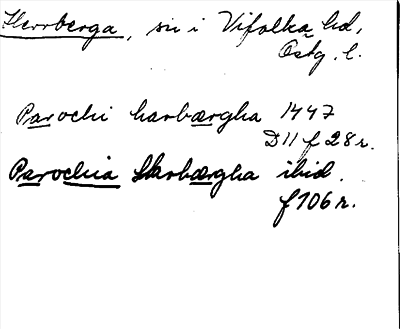 Herrberga, sn i Vifolka hd,
Östg. l.
Parochi harbærgha 1447
D11 f 28r.
Parochia Harbærgha ibid.
f 106r.